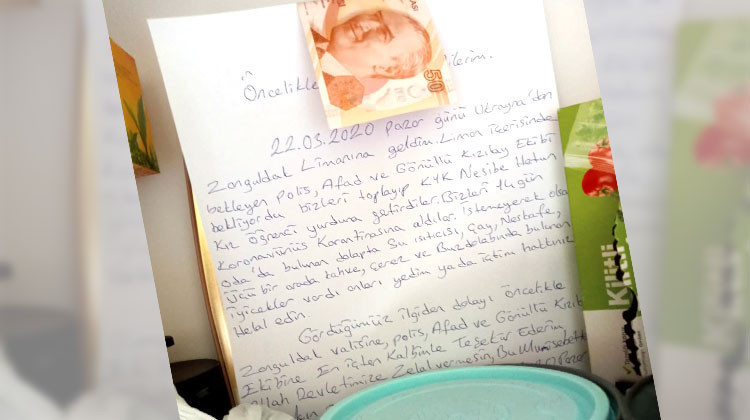 50
Öncelikle ilerim.
22.03.2020 Pazar günü Ukrayna'dan
Zonguldak Limanına geldim. Liman içerisinde
bekleyen Polis, Afad ve Gönüllü Kızılay Ekibi
bekliyordu bizleri toplayıp KYK Nesibe Hatun
Kız Öğrenci yurduna getirdiler. Bizleri 14 gün
Koronavürüs Karantinasına aldılar. İstemeyerek olsa
oda'da bulunan dolapta Su ısıtıcısı, Çay, Neskafe,
Üçü bir arada kahve, Çerez ve Buzdolabında bulunan
İçicekler vardı onları yedim yada içtim hakkınız
Helal edin.
Gördüğümüz ilgiden dolayı öncelikle
Zonguldak valisine, polis, Afad ve Gönüllü Kızıl
Ekibine En içten Kalbimle Teşekür Ederim
Allah Devletimize Zelal vermesin, Bu Münasebetle
Pazar
Kilitli